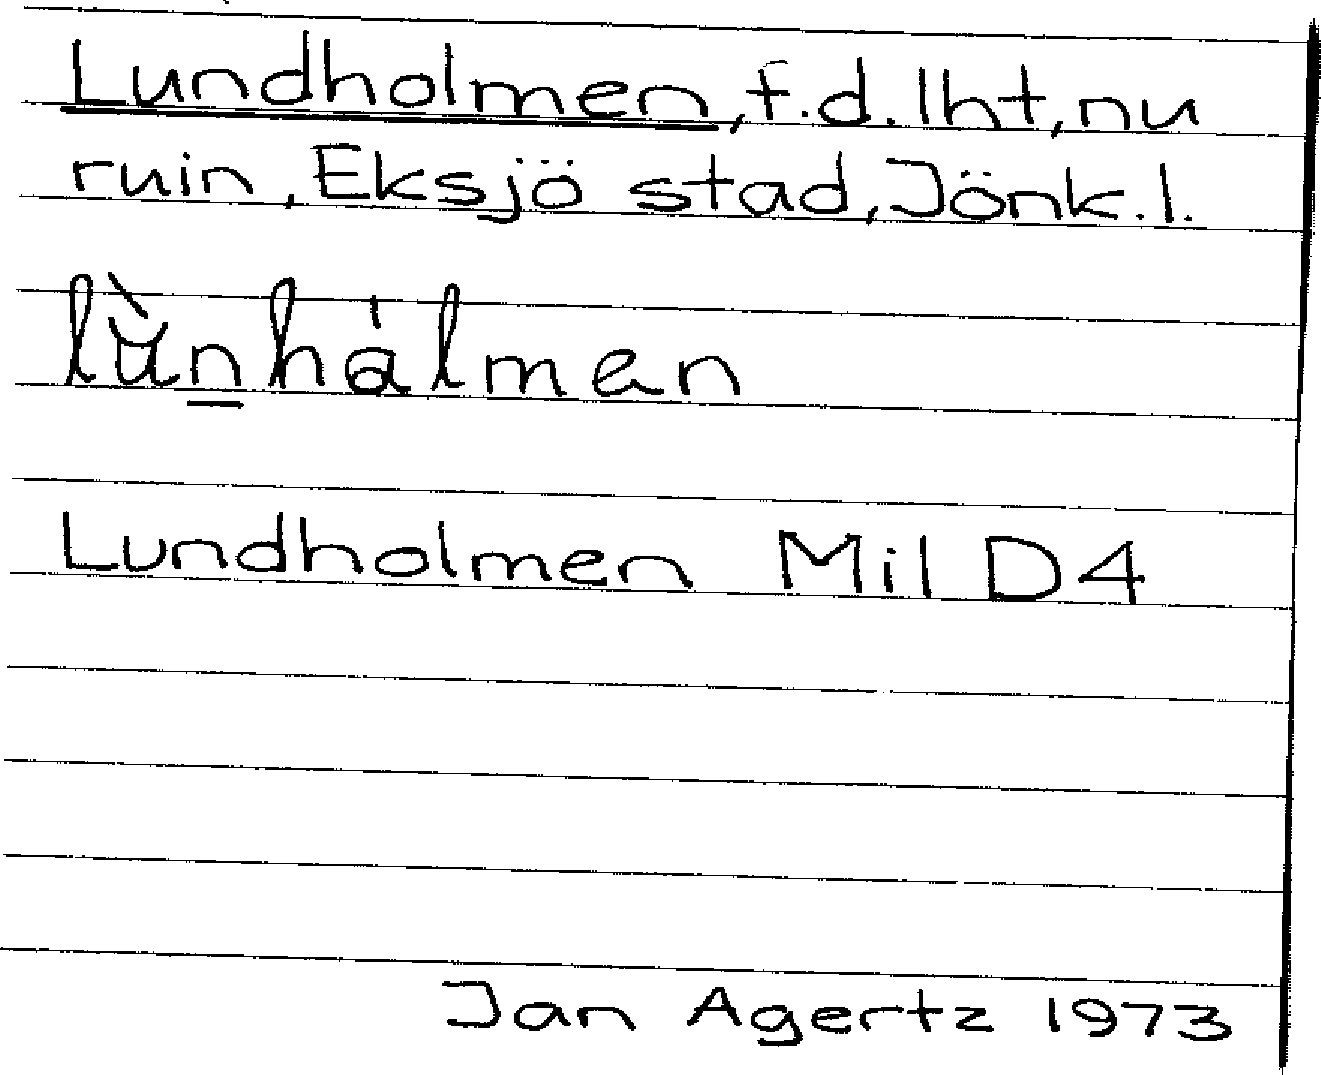 Lundholmen, f.d. lht, nu
ruin, Eksjö stad, Jönk.l.
lùnhålmen
Lundholmen Mil D4
Jan Agertz 1973